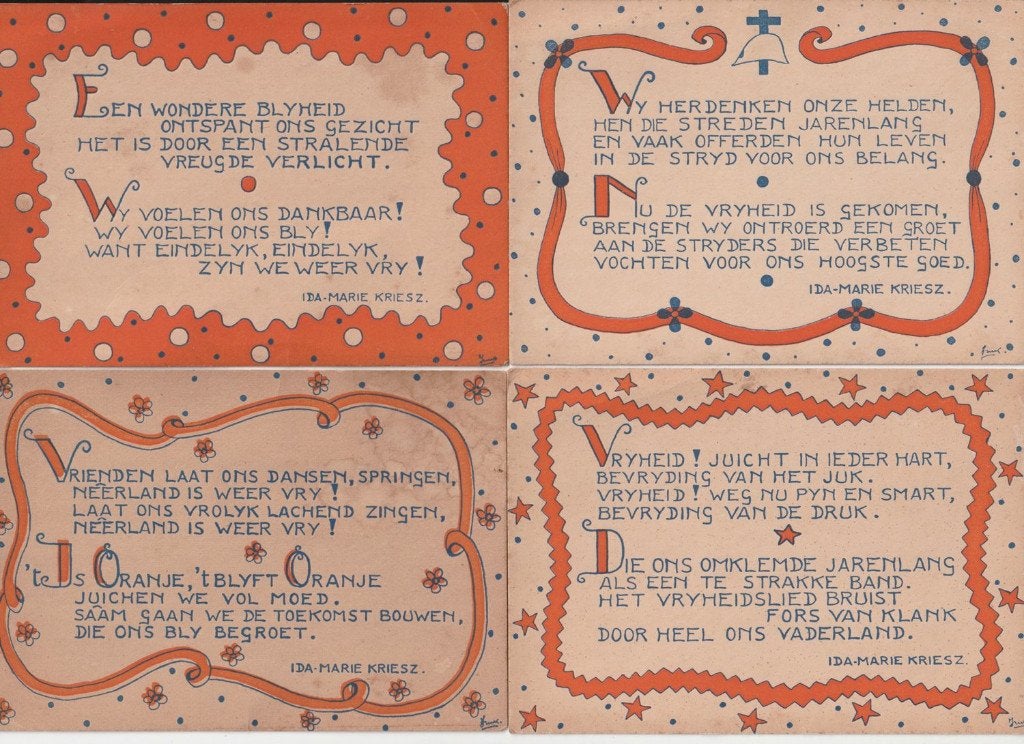 EEN WONDERE BLYHEID
ONTSPANT ONS GEZICHT
HET IS DOOR EEN STRALENDE
VREUGDE VERLICHT.
WY VOELEN ONS DANKBAAR!
WY VOELEN ONS BLY!
WANT EINDELYK, EINDELYK,
ZYN WE WEER VRY!
IDA-MARIE KRIESZ.
WY HERDENKEN ONZE HELDEN,
HEN DIE STREDEN JARENLANG
EN VAAK OFFERDEN HUN LEVEN
IN DE STRYD VOOR ONS BELANG.
NU DE VRYHEID IS GEKOMEN,
BRENGEN WY ONTROERD EEN GROET
AAN DE STRYDERS DIE VERBETEN
VOCHTEN VOOR ONS HOOGSTE GOED.
IDA-MARIE KRIESZ.
VRIENDEN LAAT ONS DANSEN, SPRINGEN,
NEÊRLAND IS WEER VRY!
LAAT ONS VROLYK LACHEND ZINGEN,
NEÊRLAND IS WEER VRY!
't IS ORANJE, 't BLYFT ORANJE
JUICHEN WE VOL MOED.
SÂAM GAAN WE DE TOEKOMST BOUWEN,
DIE ONS BLY BEGROET.
IDA-MARIE KRIESZ.
VRYHEID! JUICHT IN IEDER HART,
BEVRYDING VAN HET JUK.
VRYHEID! WEG NU PYN EN SMART,
BEVRYDING VAN DE DRUK.
DIE ONS OMKLEMDE JARENLANG
ALS EEN TE STRAKKE BAND.
HET VRYHEIDSLIED BRUIST
FORS VAN KLANK
DOOR HEEL ONS VADERLAND.
IDA-MARIE KRIESZ.